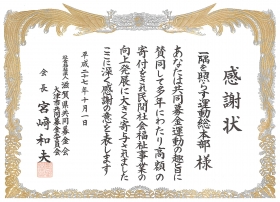 感謝状
一隅を照らす運動総本部 様
あなたは共同募金運動の趣旨に
賛同して多年にわたり高額の
寄付をされ民間社会福祉事業の
向上発展に大きく寄与されました
ここに深く感謝の意を表します
平成二十七年十月一日
社会福祉法人 滋賀県共同募金会
大津市共同募金委員会
会長 宮﨑和夫